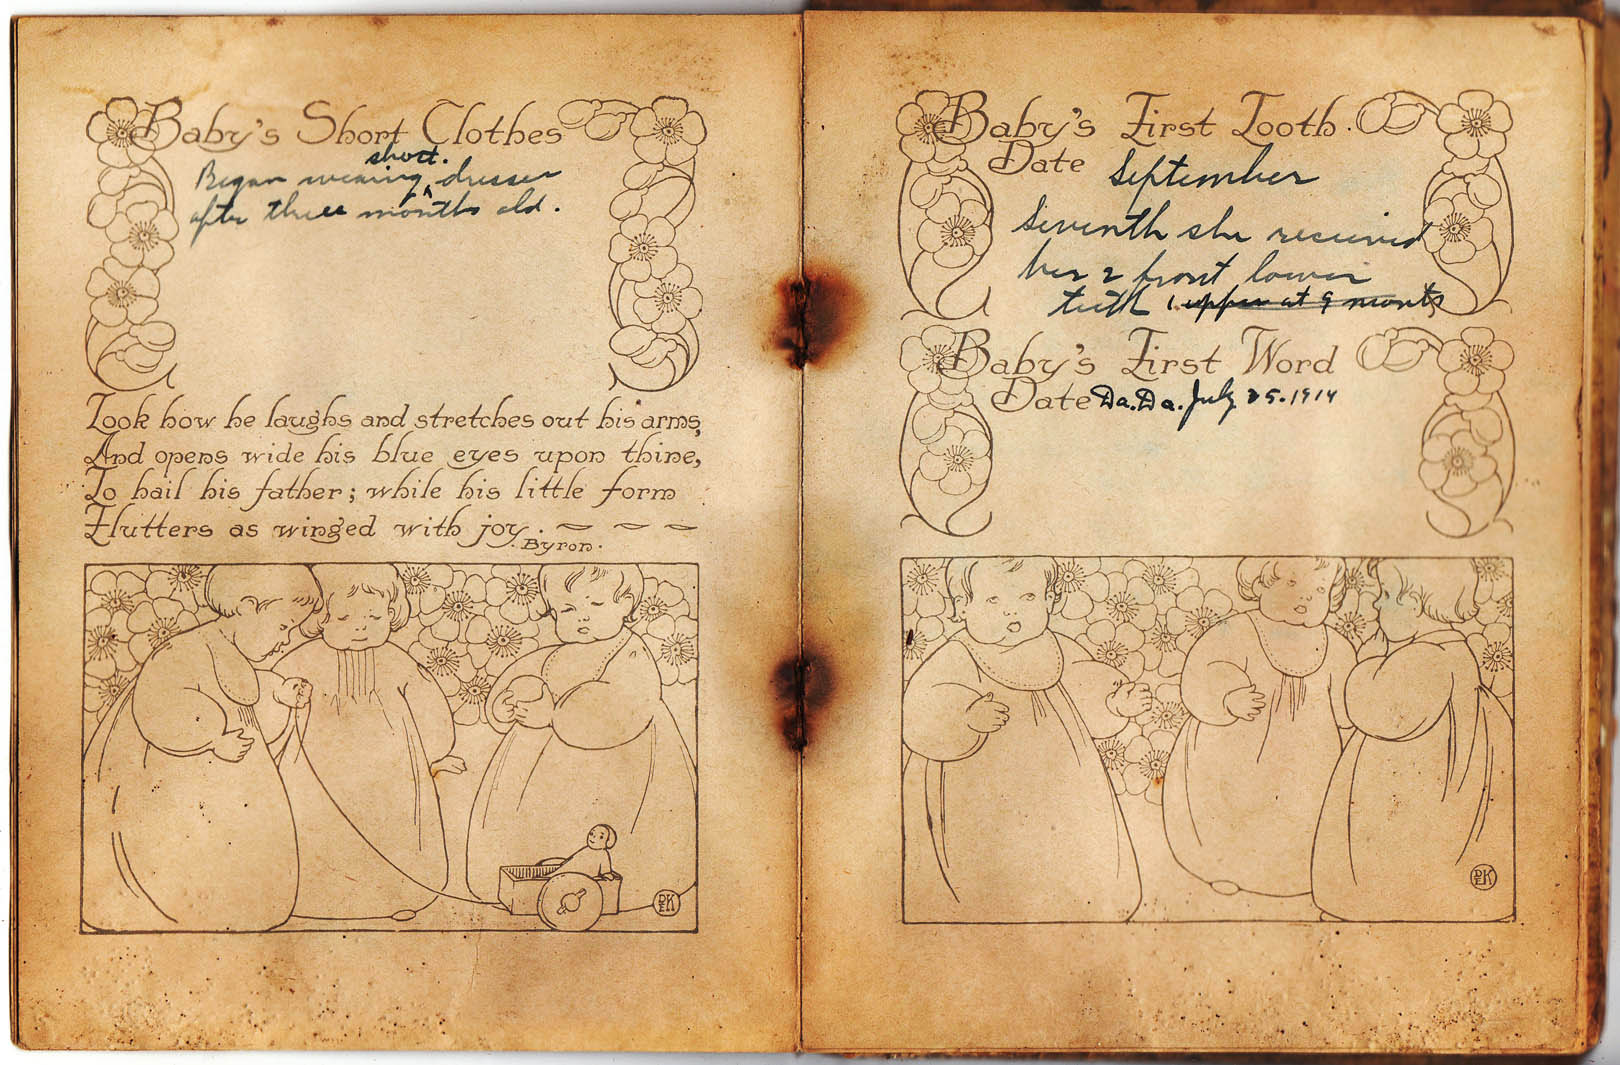 Baby's Short Clothes
short.
Began wearing ^ dresses
after three months old.
Look how he laughs and stretches out his arms,
And opens wide his blue eyes upon thine,
To hail his father; while his little form
Flutters as winged with joy. ~ ~ ~
Byron.
DEK
Baby's First Tooth.
Date September
Seventh she received
her 2 front lower
teeth 1 upper at 9 months
Baby's First Word
Date Da. Da. July 25. 1914
DEK